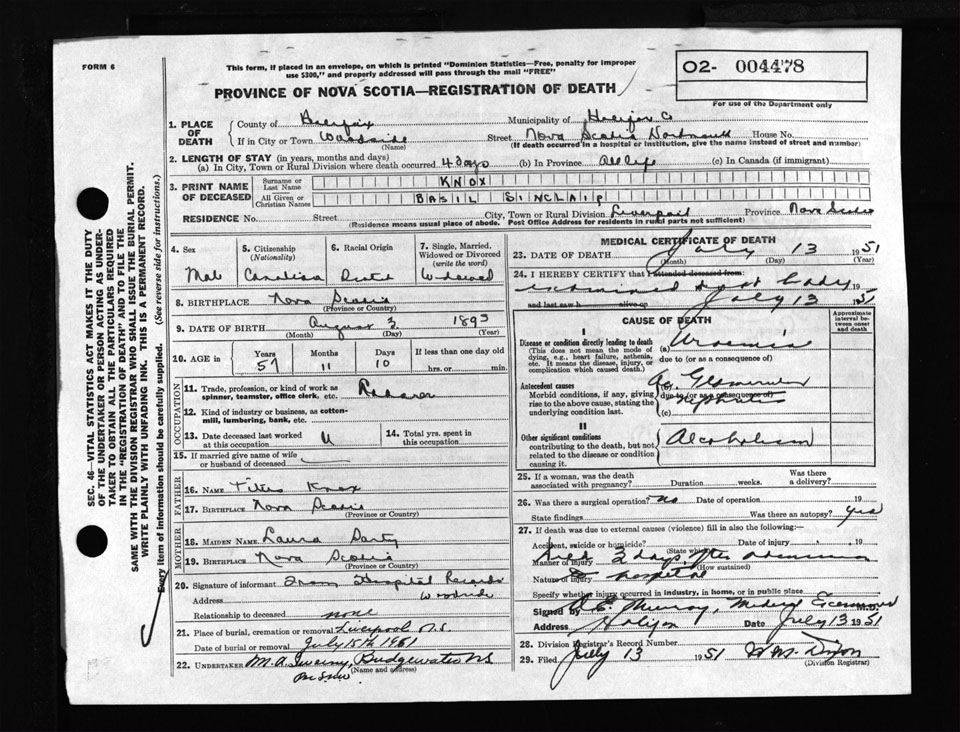 FORM 6
This form, if placed in an envelope, on which is printed "Dominion Statistics—Free, penalty for improper
use $300," and properly addressed will pass through the mail "FREE"
O2- 004478
PROVINCE OF NOVA SCOTIA—REGISTRATION OF DEATH
For use of the Department only
1. PLACE OF DEATH
County of Halifax Municipality of Halifax Co
If in City or Town Woodside Street Nova Scotia House No.
(Name) (If death occurred in a hospital or institution, give the name instead of street and number)
2. LENGTH OF STAY (in years, months and days)
(a) In City, Town or Rural Division where death occurred 4 days (b) In Province all life (c) In Canada (if immigrant)
3. PRINT NAME OF DECEASED
Surname or Last Name KNOX
All Given or Christian Names BASIL SINCLAIR
RESIDENCE No. Street City, Town or Rural Division Liverpool Province Nova Scotia
(Residence means usual place of abode. Post Office Address for residents in rural parts not sufficient)
4. Sex Male
5. Citizenship (Nationality) Canadian
6. Racial Origin Dutch
7. Single, Married, Widowed or Divorced (write the word) Widowed
8. BIRTHPLACE Nova Scotia
(Province or Country)
9. DATE OF BIRTH August 3 1893
(Month) (Day) (Year)
10. AGE in Years 57 Months 11 Days 10 If less than one day old hrs. or min.
OCCUPATION
11. Trade, profession, or kind of work as spinner, teamster, office clerk, etc. Labourer
12. Kind of industry or business, as cotton-mill, lumbering, bank, etc.
13. Date deceased last worked at this occupation U
14. Total yrs. spent in this occupation
15. If married give name of wife or husband of deceased
FATHER
16. NAME Titus Knox
17. BIRTHPLACE Nova Scotia
(Province or Country)
MOTHER
18. MAIDEN NAME Laura
19. BIRTHPLACE Nova Scotia
(Province or Country)
20. Signature of informant From Hospital Records
Address Woodside
Relationship to deceased none
21. Place of burial, cremation or removal Liverpool N.S.
Date of burial or removal July 15th 1951
22. UNDERTAKER M.A. Bridgewater NS
(Name and address)
MEDICAL CERTIFICATE OF DEATH
23. DATE OF DEATH July 13 1951
(Month) (Day)
24. I HEREBY CERTIFY that I attended deceased from: 19
examined dead body
and last saw h alive on July 13 1951
CAUSE OF DEATH
Approximate interval between onset and death
I
Disease or condition directly leading to death (a) Uraemia
(This does not mean the mode of dying, e.g., heart failure, asthenia, etc. It means the disease, injury, or complication which caused death.)
due to (or as a consequence of)
Antecedent causes
Morbid conditions, if any, giving rise to the above cause, stating the underlying condition last.
Glomerular Nephritis
due to (or as a consequence of)
(c)
II
Other significant conditions
contributing to the death, but not related to the disease or condition causing it.
Alcoholism
25. If a woman, was the death associated with pregnancy? Duration weeks. Was there a delivery?
26. Was there a surgical operation? no Date of operation 19
State findings Was there an autopsy? yes
27. If death was due to external causes (violence) fill in also the following:—
Accident, suicide or homicide? Date of injury 19
(State which)
Manner of injury died 2 days after admission
(How sustained)
Nature of injury to hospital
Specify whether injury occurred in industry, in home, or in public place
Signed by Murray, Medical Examiner M.D.
Address Halifax Date July 13 1951
28. Division Registrar's Record Number
29. Filed July 13 1951
(Division Registrar)
SEC. 46—VITAL STATISTICS ACT MAKES IT THE DUTY
OF THE UNDERTAKER OR PERSON ACTING AS UNDER-
TAKER TO OBTAIN ALL THE PARTICULARS REQUIRED
IN THE "REGISTRATION OF DEATH" AND TO FILE THE
SAME WITH THE DIVISION REGISTRAR WHO SHALL ISSUE THE BURIAL PERMIT.
WRITE PLAINLY WITH UNFADING INK. THIS IS A PERMANENT RECORD.
Every item of information should be carefully supplied. (See reverse side for instructions.)